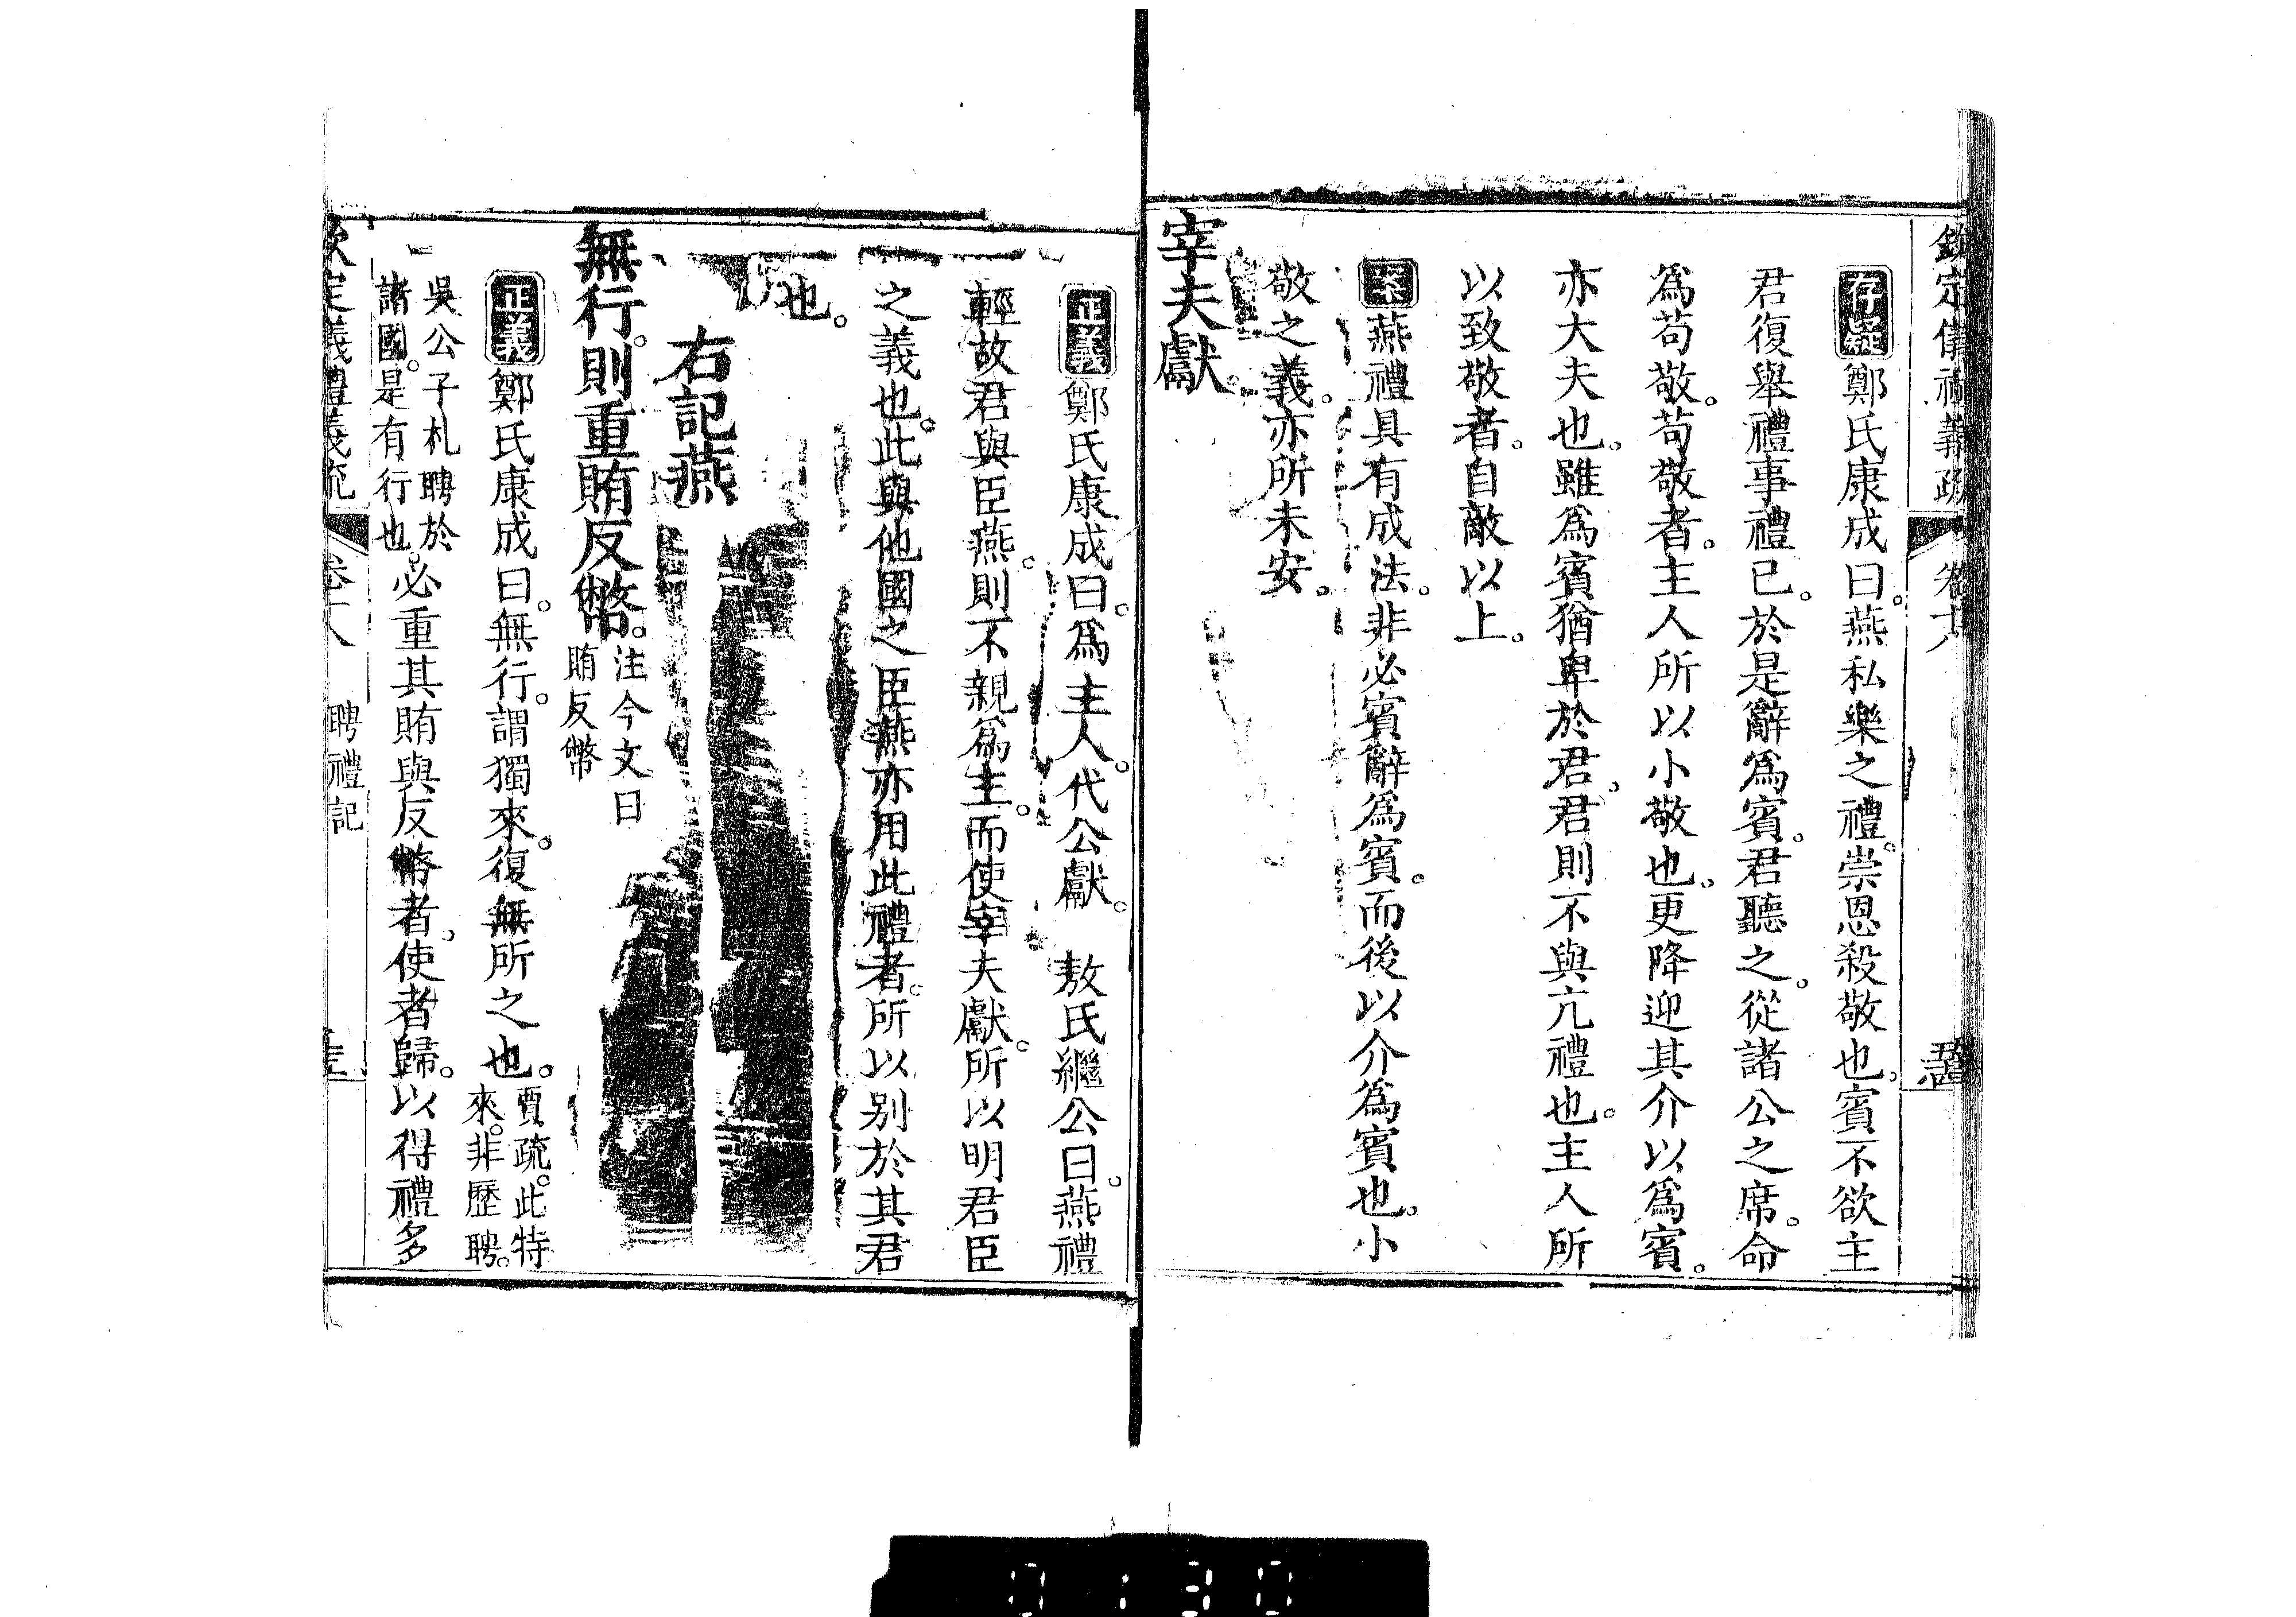 欽定儀禮義疏 卷十八
存疑鄭氏康成曰。燕私樂之禮。崇恩殺敬也。賓不欲主
君復舉禮事禮已。於是辭爲賓。君聽之。從諸公之席。命
爲苟敬。苟敬者。主人所以小敬也。更降迎其介以爲賓。
亦大夫也。雖爲賓猶卑於君。君則不與亢禮也。主人所
以致敬者。自敵以上。
案燕禮具有成法。非必賓辭爲賓。而後以介爲賓也。小
敬之義。亦所未安。
宰夫獻。
正義鄭氏康成曰。爲主人。代公獻。 敖氏繼公曰。燕禮
輕故君與臣燕。則不親爲主。而使宰夫獻。所以明君臣
之義也。此與他國之臣燕亦用此禮者。所以别於其君
也。
右記燕
無行。則重賄反幣。注今文曰
賄反幣
正義鄭氏康成曰。無行。謂獨來。復無所之也。賈疏。此特
來。非歷聘。
吳公子札聘於
諸國。是有行也。必重其賄與反幣者。使者歸。以得禮多
欽定義禮義疏 卷十八 聘禮記